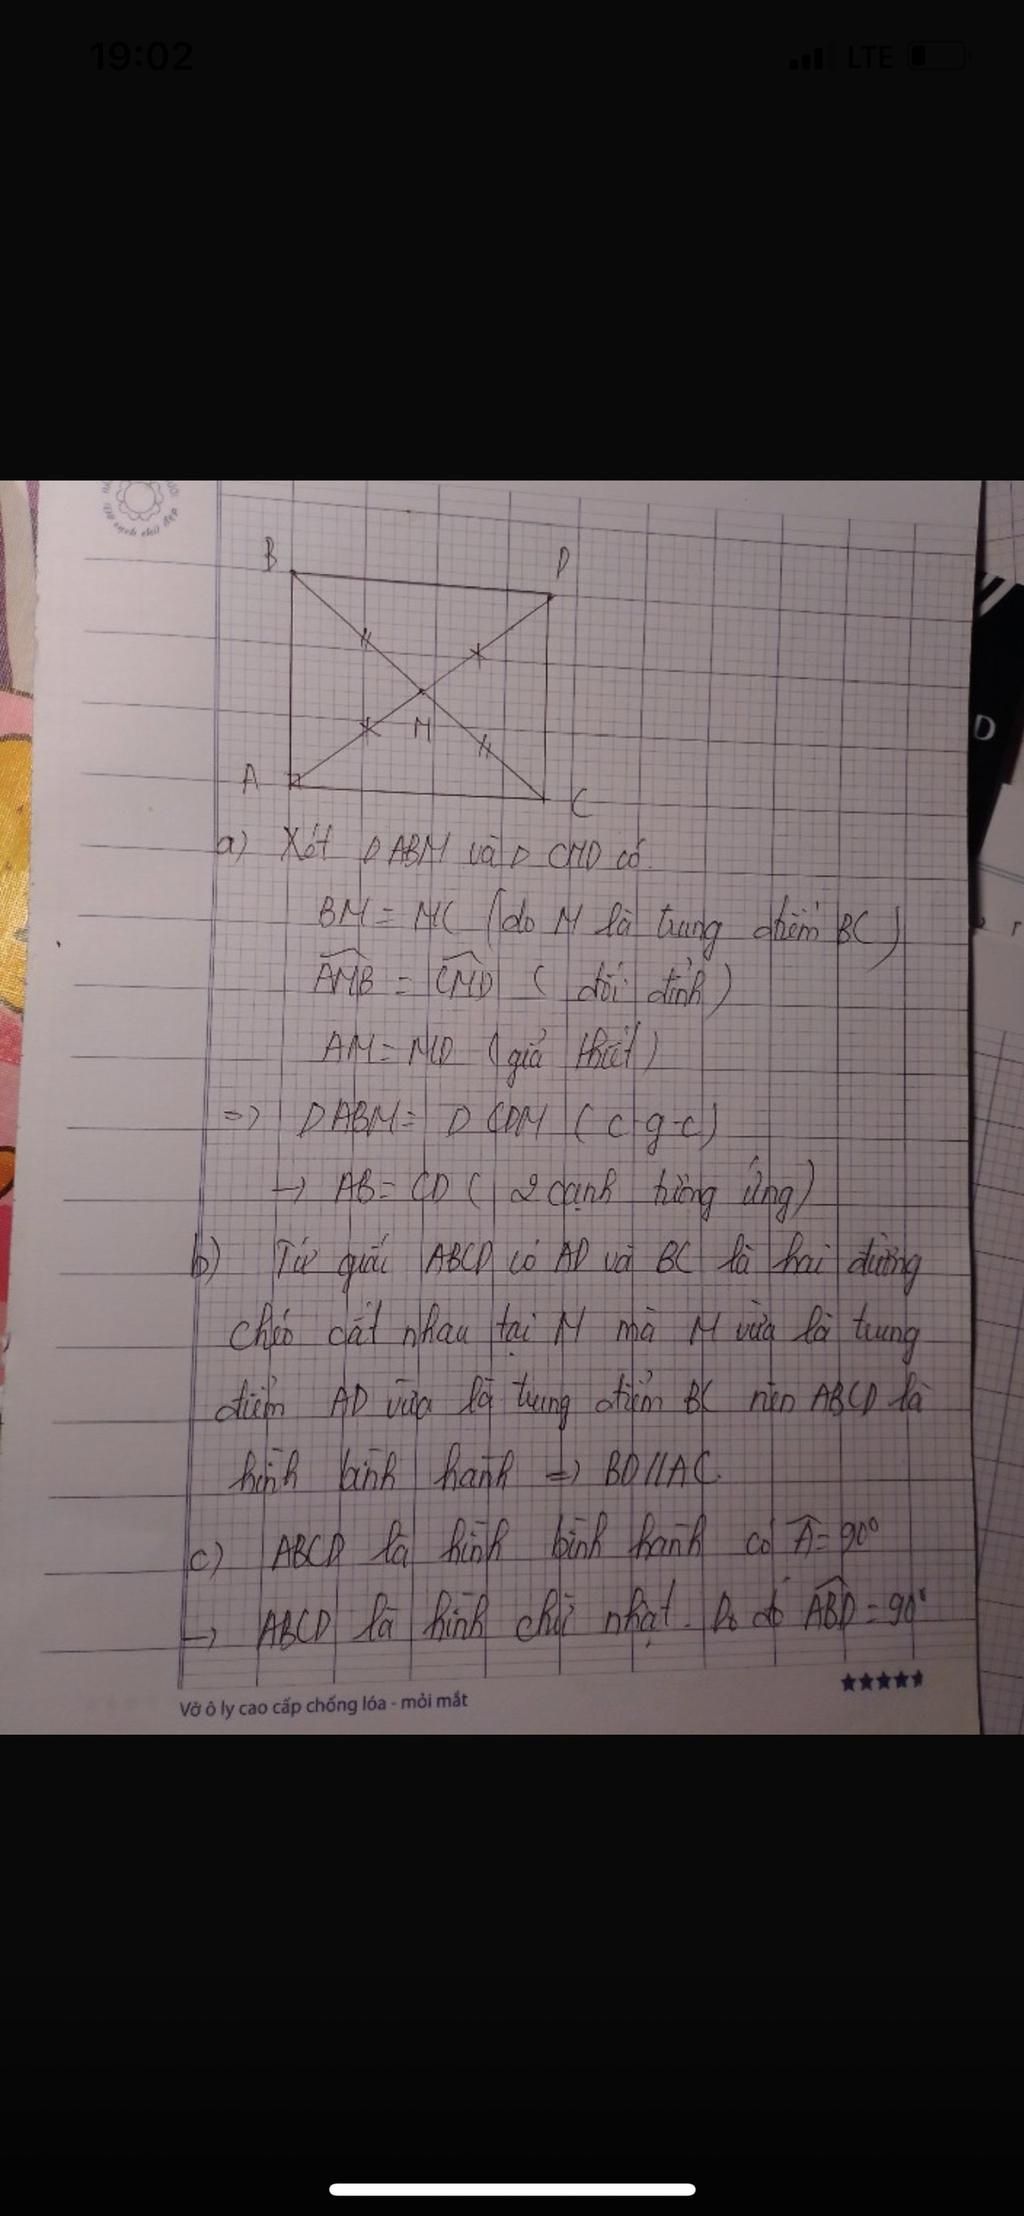 19:02
LTE
sạch chữ đẹp
B
D
M
A
C
D
a) Xét D ABM và D CMD có
BM = MC (do M là trung điểm BC)
AMB = CMD ( đối đỉnh)
AM = MD (giả thiết)
=> D ABM = D CDM ( c-g-c)
-> AB = CD ( 2 cạnh tương ứng)
b) Tứ giác ABCD có AD và BC là hai đường
chéo cắt nhau tại M mà M vừa là trung
điểm AD vừa là trung điểm BC nên ABCD là
hình bình hành => BD//AC
c) ABCD là hình bình hành có A = 90°
-> ABCD là hình chữ nhật. Do đó ABD = 90°
Vở ô ly cao cấp chống lóa - mỏi mắt